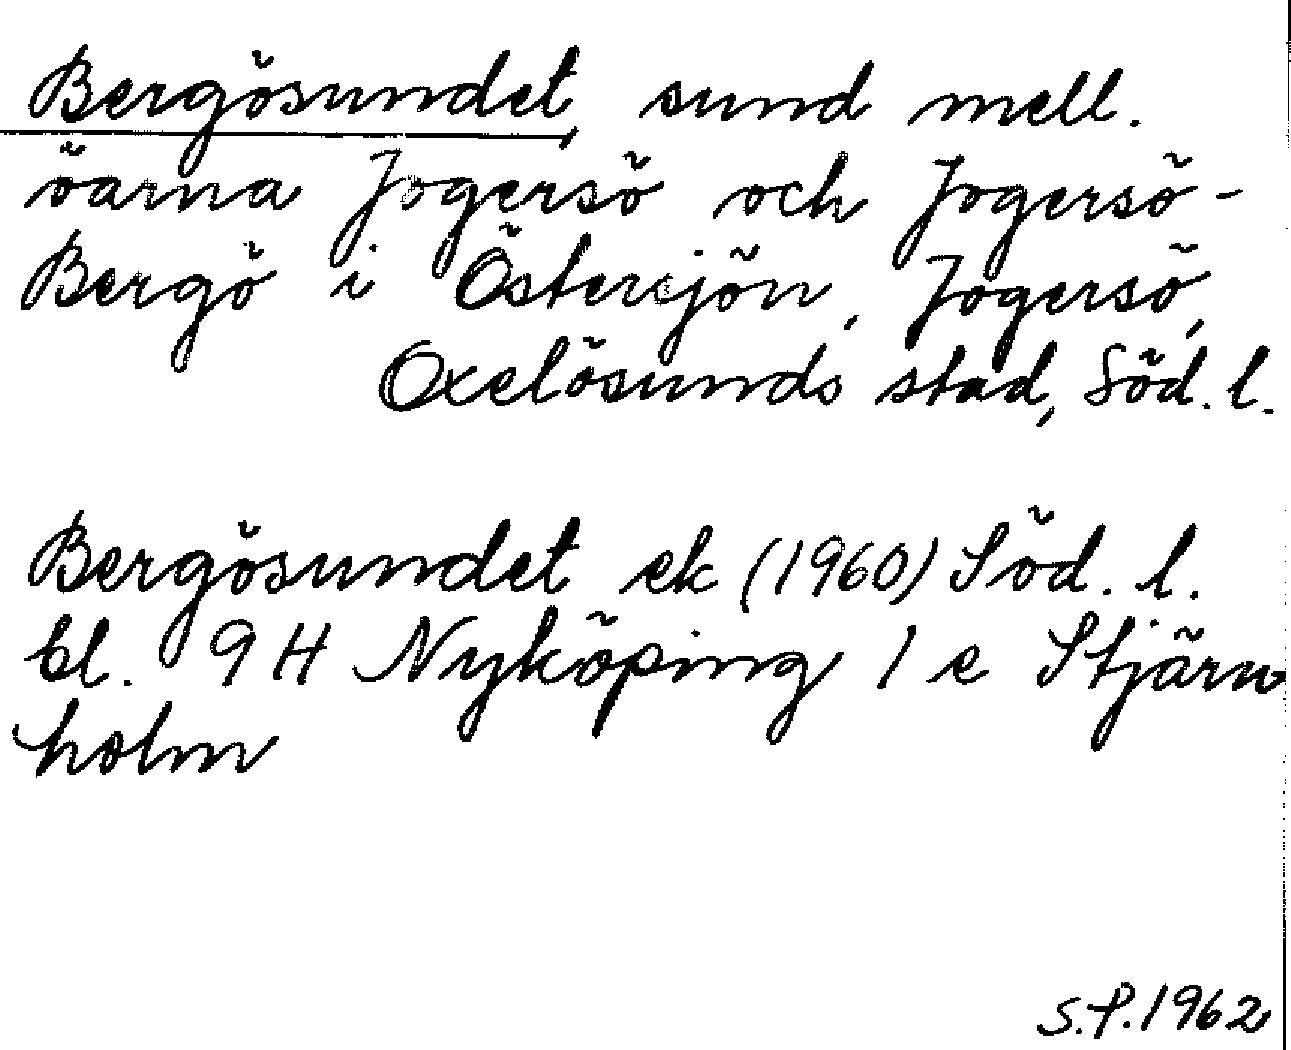 Bergösundet, sund mell.
öarna Jogersö och Jogersö-
Bergö i Östersjön, Jogersö,
Oxelösunds stad, Söd. l.
Bergösundet ek (1960) Söd. l.
bl. 9 H Nyköping 1 e Stjärn
holm
S.P. 1962